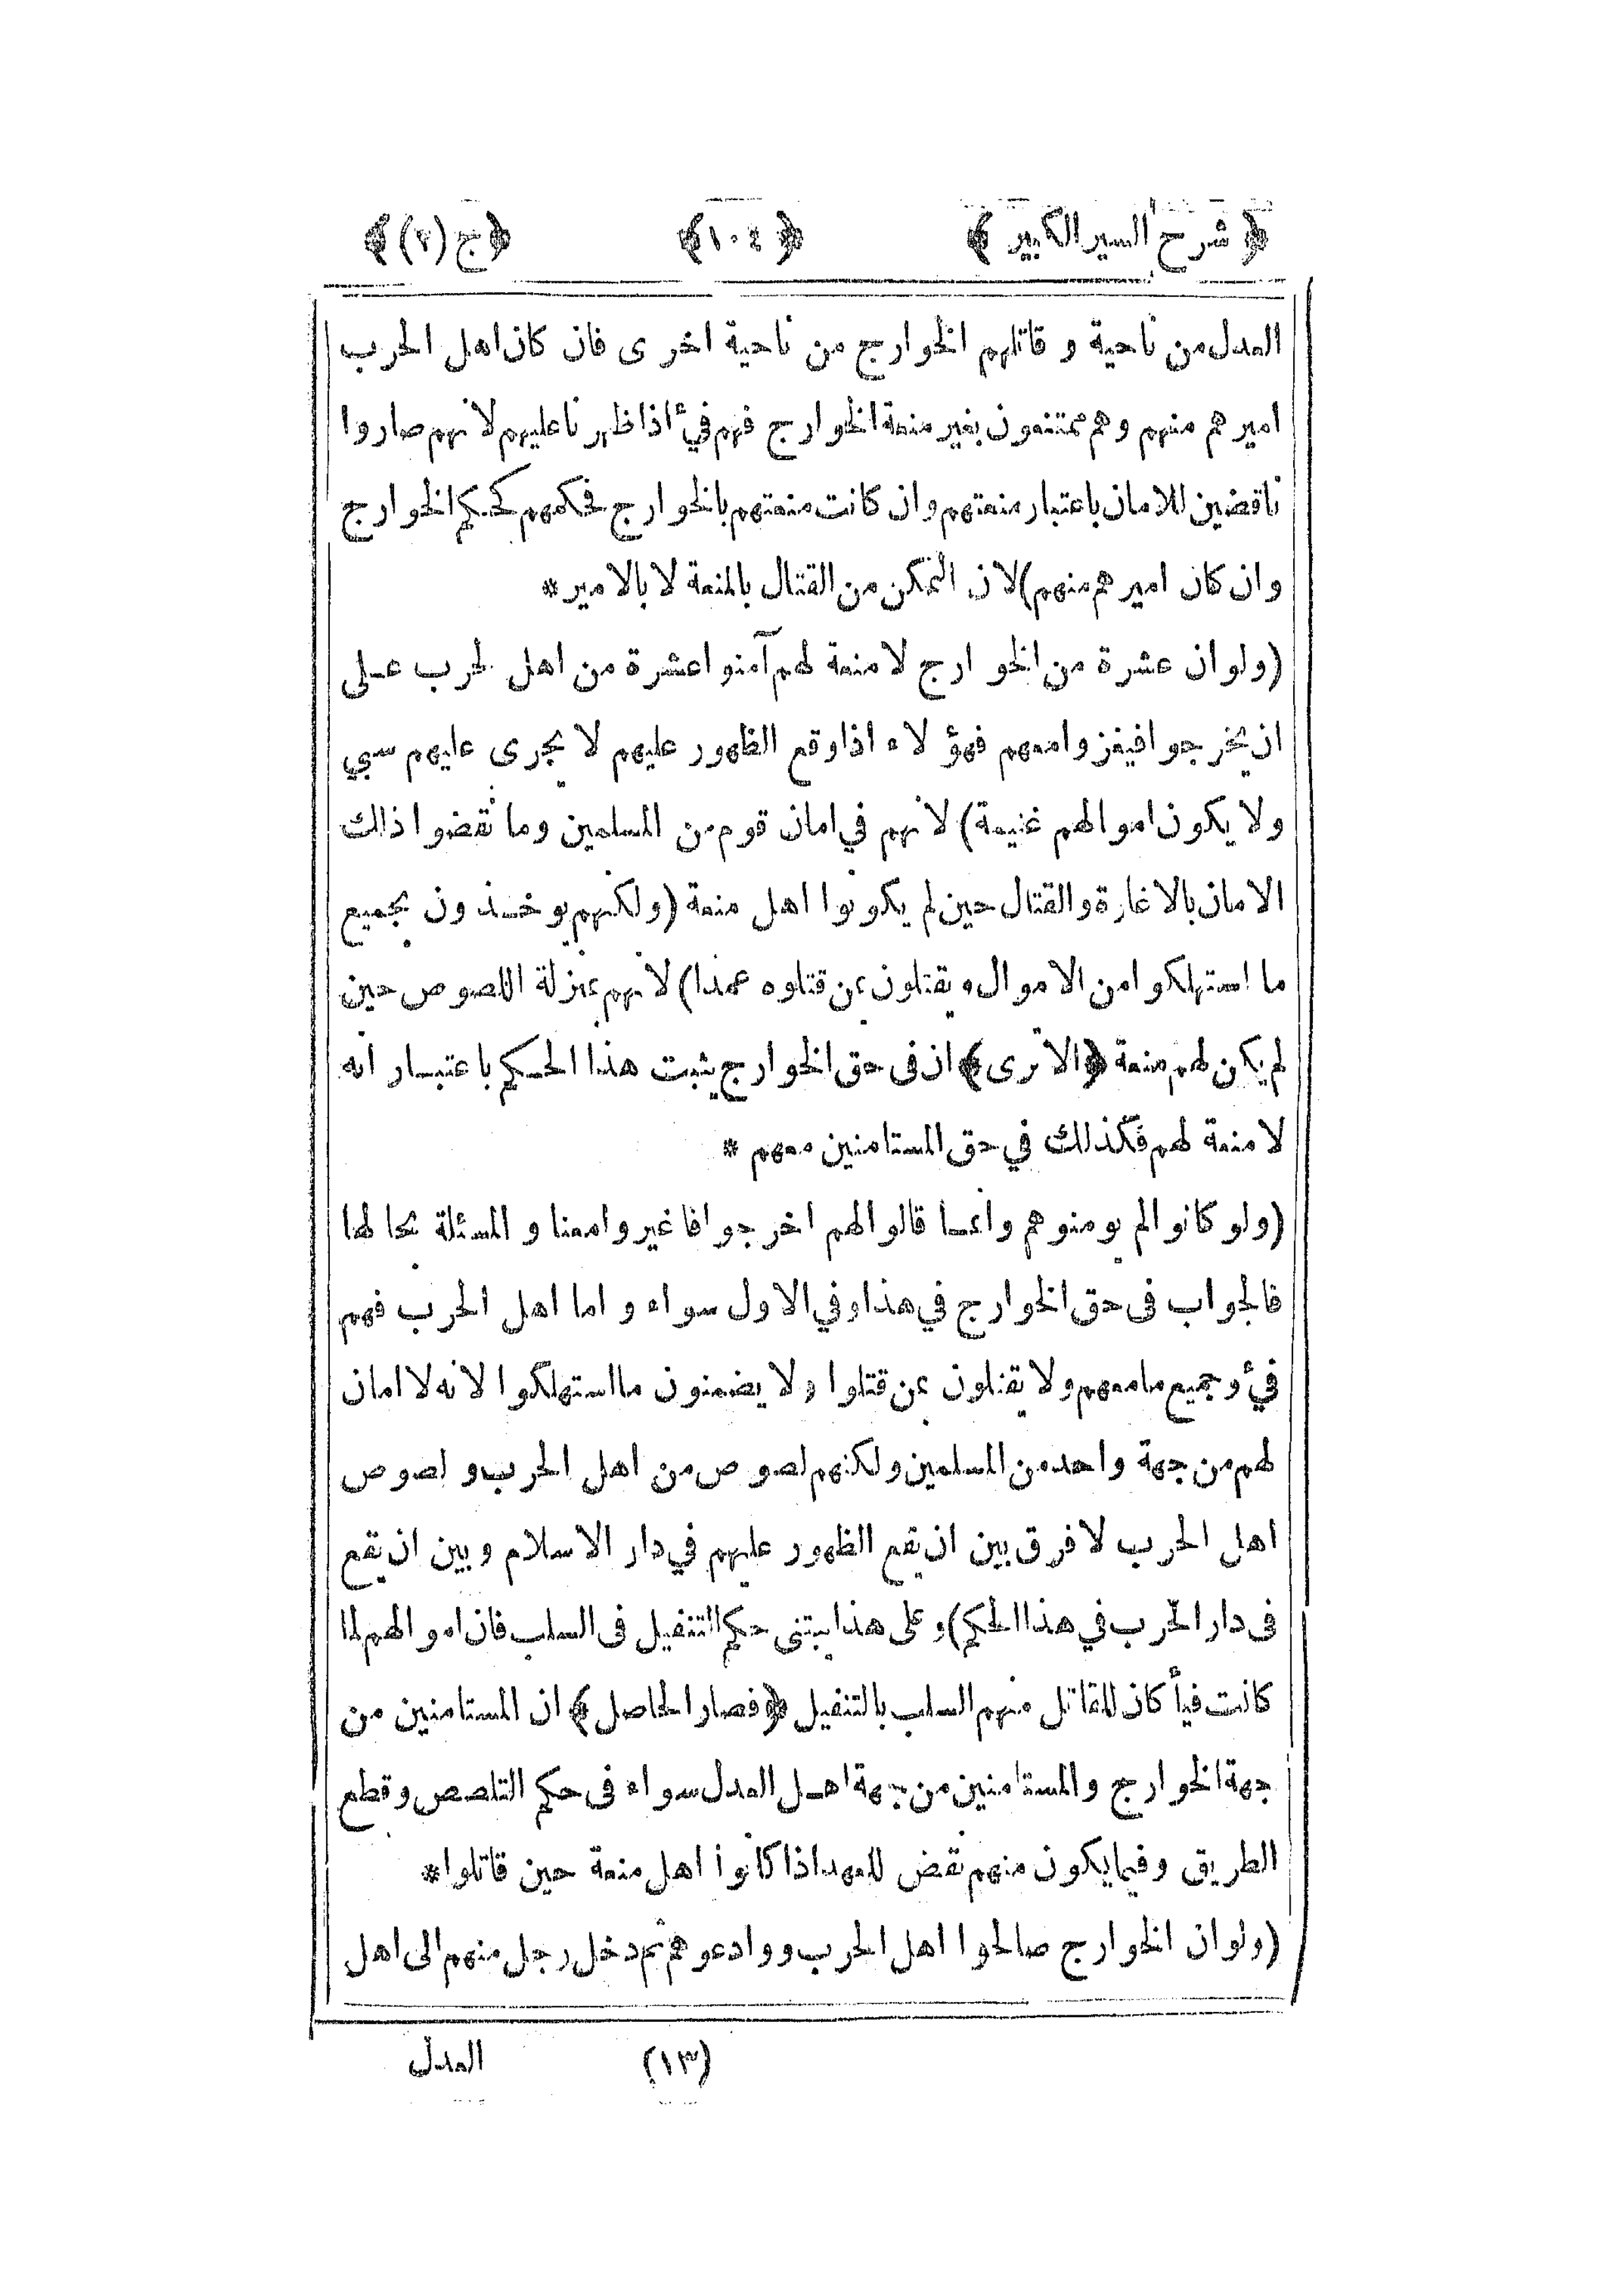 ﴿ شرح السير الكبير ﴾ ﴿ ١٠٤ ﴾ ﴿ ج (٢) ﴾
العدل من ناحية و قاتلهم الخوارج من ناحية اخرى فان كان اهل الحرب
اميرهم منهم وهم ممتنعون بغير منعة الخوارج فهم فئ اذا ظهر نا عليهم لانهم صاروا
ناقضين للامان باعتبار منعتهم وان كانت منعتهم بالخوارج فحكمهم كحكم الخوارج
وان كان اميرهم منهم) لان التمكن من القتال بالمنعة لا بالامير *
(ولو ان عشرة من الخوارج لا منعة لهم آمنوا عشرة من اهل لحرب على
ان يخرجوا فيغزوا معهم فهؤلاء اذا وقع الظهور عليهم لا يجرى عليهم سبي
ولا يكون اموالهم غنيمة) لانهم في امان قوم من المسلمين وما نقضوا ذلك
الامان بالاغارة والقتال حين لم يكونوا اهل منعة (ولكنهم يوخذون بجميع
ما استهلكوا من الاموال ويقتلون بمن قتلوه عمدا) لانهم بمنزلة اللصوص حين
لم يكن لهم منعة ﴿الا ترى﴾ ان فى حق الخوارج يثبت هذا الحكم باعتبار انه
لا منعة لهم فكذلك في حق المستامنين معهم *
(ولو كانوا لم يومنوهم وانما قالوا لهم اخرجوا فاغيروا معنا و المسئلة بحالها
فالجواب فى حق الخوارج في هذا وفي الاول سواء و اما اهل الحرب فهم
فئ وجميع ما معهم ولا يقتلون بمن قتلوا ولا يضمنون ما استهلكوا لانه لا امان
لهم من جهة واحد من المسلمين ولكنهم لصوص من اهل الحرب و لصوص
اهل الحرب لا فرق بين ان يقع الظهور عليهم في دار الاسلام و بين ان يقع
فى دار الحرب في هذا الحكم) وعلى هذا يبتنى حكم التنفيل فى السلب فان اموالهم لما
كانت فيأ كان للقاتل منهم السلب بالتنفيل ﴿فصار الحاصل﴾ ان المستامنين من
جهة الخوارج والمستامنين من جهة اهل العدل سواء فى حكم التلصص وقطع
الطريق وفيما يكون منهم نقض للعهد اذا كانوا اهل منعة حين قاتلوا *
(ولو ان الخوارج صالحوا اهل الحرب ووادعوهم ثم دخل رجل منهم الى اهل
(١٣) العدل